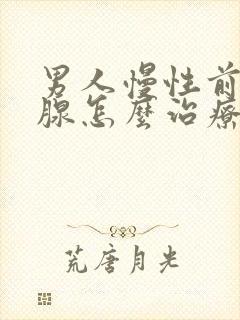 男人慢性前
腺怎麼治療
荒唐月光